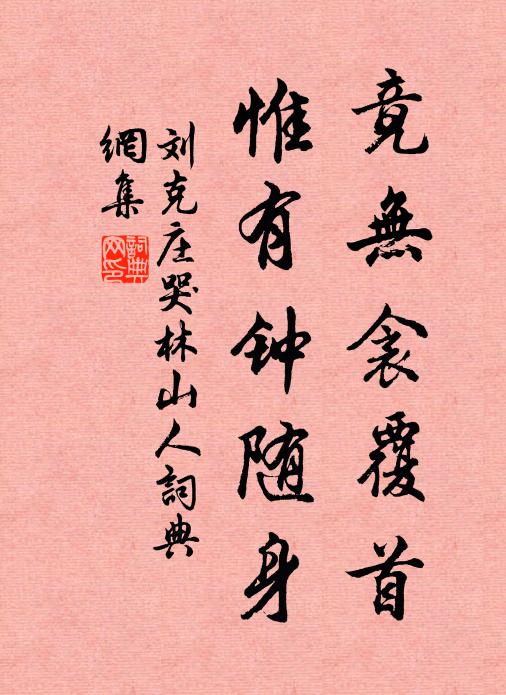 竟無衾覆首
惟有钟随身
刘克庄哭林山人詞典
網集
詞典
网印